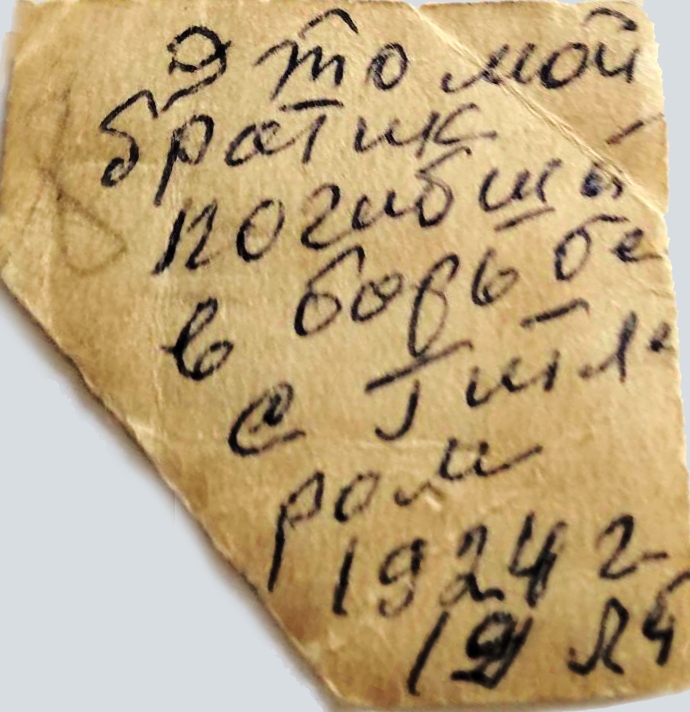 Это мой
братик
погибший
в борьбе
с Гитле
ром
1924 г
19 лет